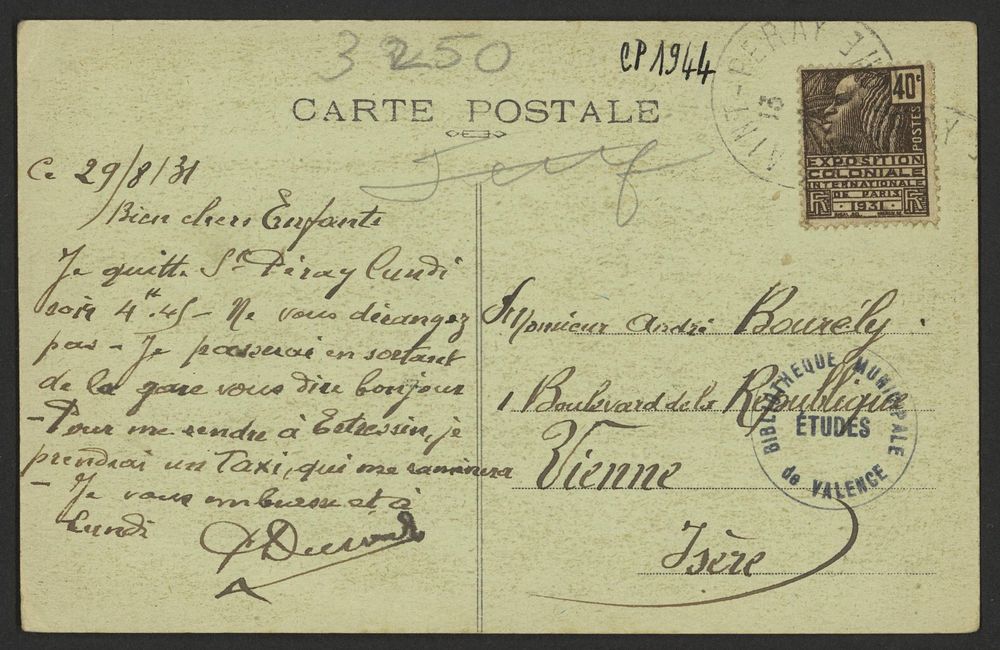 3250
CP 1944
CARTE POSTALE
Ce 29/8/31
Bien chers Enfants
Je quitte St Péray lundi
soir 4H.45 - Ne vous dérangez
pas - Je passerai en sortant
de la gare vous dire bonjour
- Pour me rendre à Estressin, je
prendrai un Taxi, qui me ramènera
- Je vous embrasse et à
Lundi
Monsieur André Bourély.
1 Boulevard de la République
Vienne
Isère
AINT-PERAY
13
40c
POSTES
EXPOSITION
COLONIALE
INTERNATIONALE
DE PARIS
RF 1931 RF
BIBLIOTHEQUE MUNICIPALE
ÉTUDES
de VALENCE